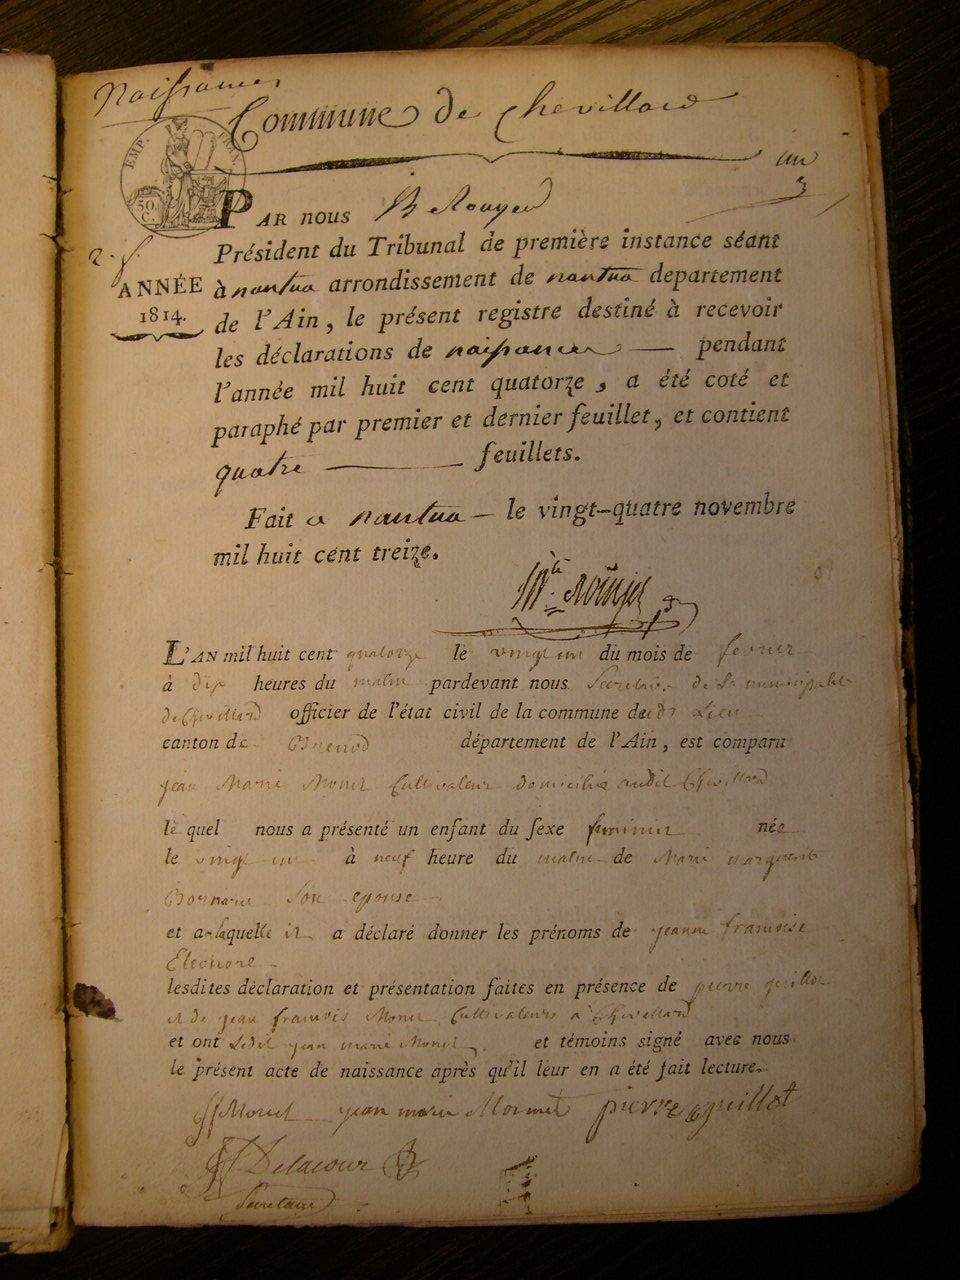 Naissances
Commune de Chevillard
EMP. FRAN.
50. C.
un
PAR NOUS
Président du Tribunal de première instance séant
ANNÉE
1814.
à nantua arrondissement de nantua departement
de l'Ain, le présent registre destiné à recevoir
les déclarations de naissances pendant
l'année mil huit cent quatorze, a été coté et
paraphé par premier et dernier feuillet, et contient
quatre feuillets.
Fait a nantua le vingt-quatre novembre
mil huit cent treize.
L'AN mil huit cent quatorze le vingt un du mois de fevrier
à dix heures du matin pardevant nous Secretaire de la municipalité
de Chevillard officier de l'état civil de la commune de dt Lieu
canton de Brenod département de l'Ain, est comparu
jean Marie Monet Cultivateur domicilié audit Chevillard
le quel nous a présenté un enfant du sexe feminin née
le vingt un à neuf heure du matin de Marie marguerite
Son epouse
et a laquelle il a déclaré donner les prénoms de jeanne francoise
Eleonore
lesdites déclaration et présentation faites en présence de pierre guillot
et de jean francois Monet Cultivateurs à Chevillard
et ont Ledit jean marie Monet et témoins signé avec nous
le présent acte de naissance après qu'il leur en a été fait lecture.
jf Monet jean marie Monnet pierre guillot
Delacour
Secretaire